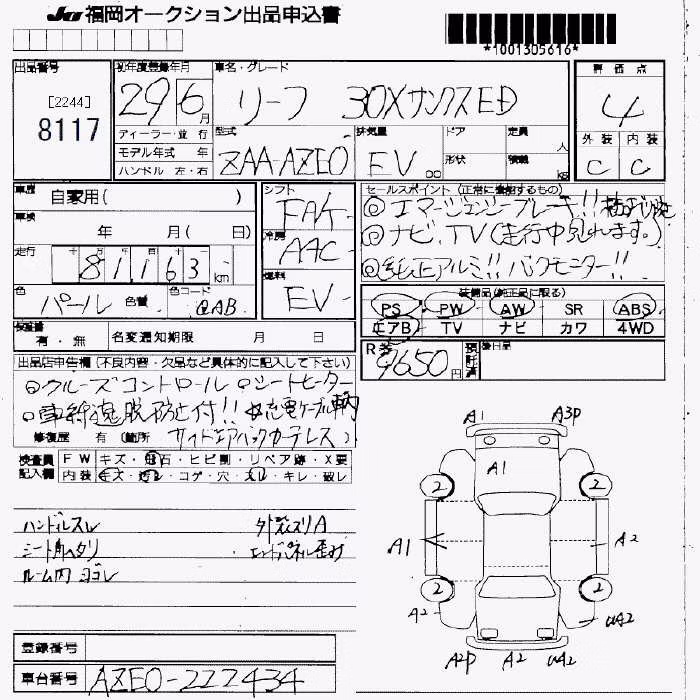 JU 福岡オークション出品申込書
*1001305616*
出品番号 [2244] 8117
初年度登録年月 29 6月
車名・グレード リーフ 30X サンクスED
評価点 4
外装 C 内装 C
ディーラー・並行
モデル年式 年
ハンドル 左・右
型式 ZAA-AZEO
排気量 EV cc
ドア
形状
定員 人
積載 kg
車歴 自家用( )
車検 年 月( 日)
走行 81,163 km
色 パール 色替 色コード QAB
シフト FAT
冷房 AAC
燃料 EV
セールスポイント (正常に作動するもの)
◎エマージェンシーブレーキ!!
◎ナビ、TV(走行中見れます。)
◎純正アルミ!! バックモニター!!
装備品(純正品に限る)
PS PW AW SR ABS
エアB TV ナビ カワ 4WD
有・無 名変通知期限 月 日
R券 9650円 預託済
後日品
出品店申告欄 (不良内容・欠品など具体的に記入して下さい)
◎クルーズコントロール ◎シートヒーター
◎車線逸脱防止付!! 充電ケーブル
修復歴 有 (箇所 サイドエアバックカーテレス)
検査員記入欄
FW キズ・飛石・ヒビ割・リペア跡・X要
内装 キズ・汚レ・コゲ・穴・スレ・キレ・破レ
ハンドルスレ
シート角ヘタリ
ルーム内ヨゴレ
外装スリA
エンドパネル歪み
A1 A3P
A1
2 2
A1 A2
2 2
A2 UA2
A2P A2 UA2
登録番号
車台番号 AZEO-222434